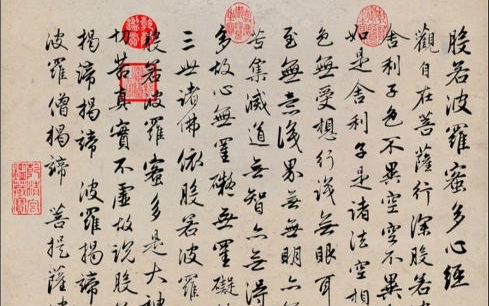 般若波羅蜜多心經
觀自在菩薩行深般若
舍利子色不異空空不異
如是舍利子是諸法空相
色無受想行識無眼耳
至無意識界無無明亦無
苦集滅道無智亦無得
多故心無罣礙無罣礙
三世諸佛依般若波羅
般若波羅蜜多是大神
切苦真實不虛故說般
揭諦揭諦 波羅揭諦
波羅僧揭諦 菩提薩婆
乾清宮